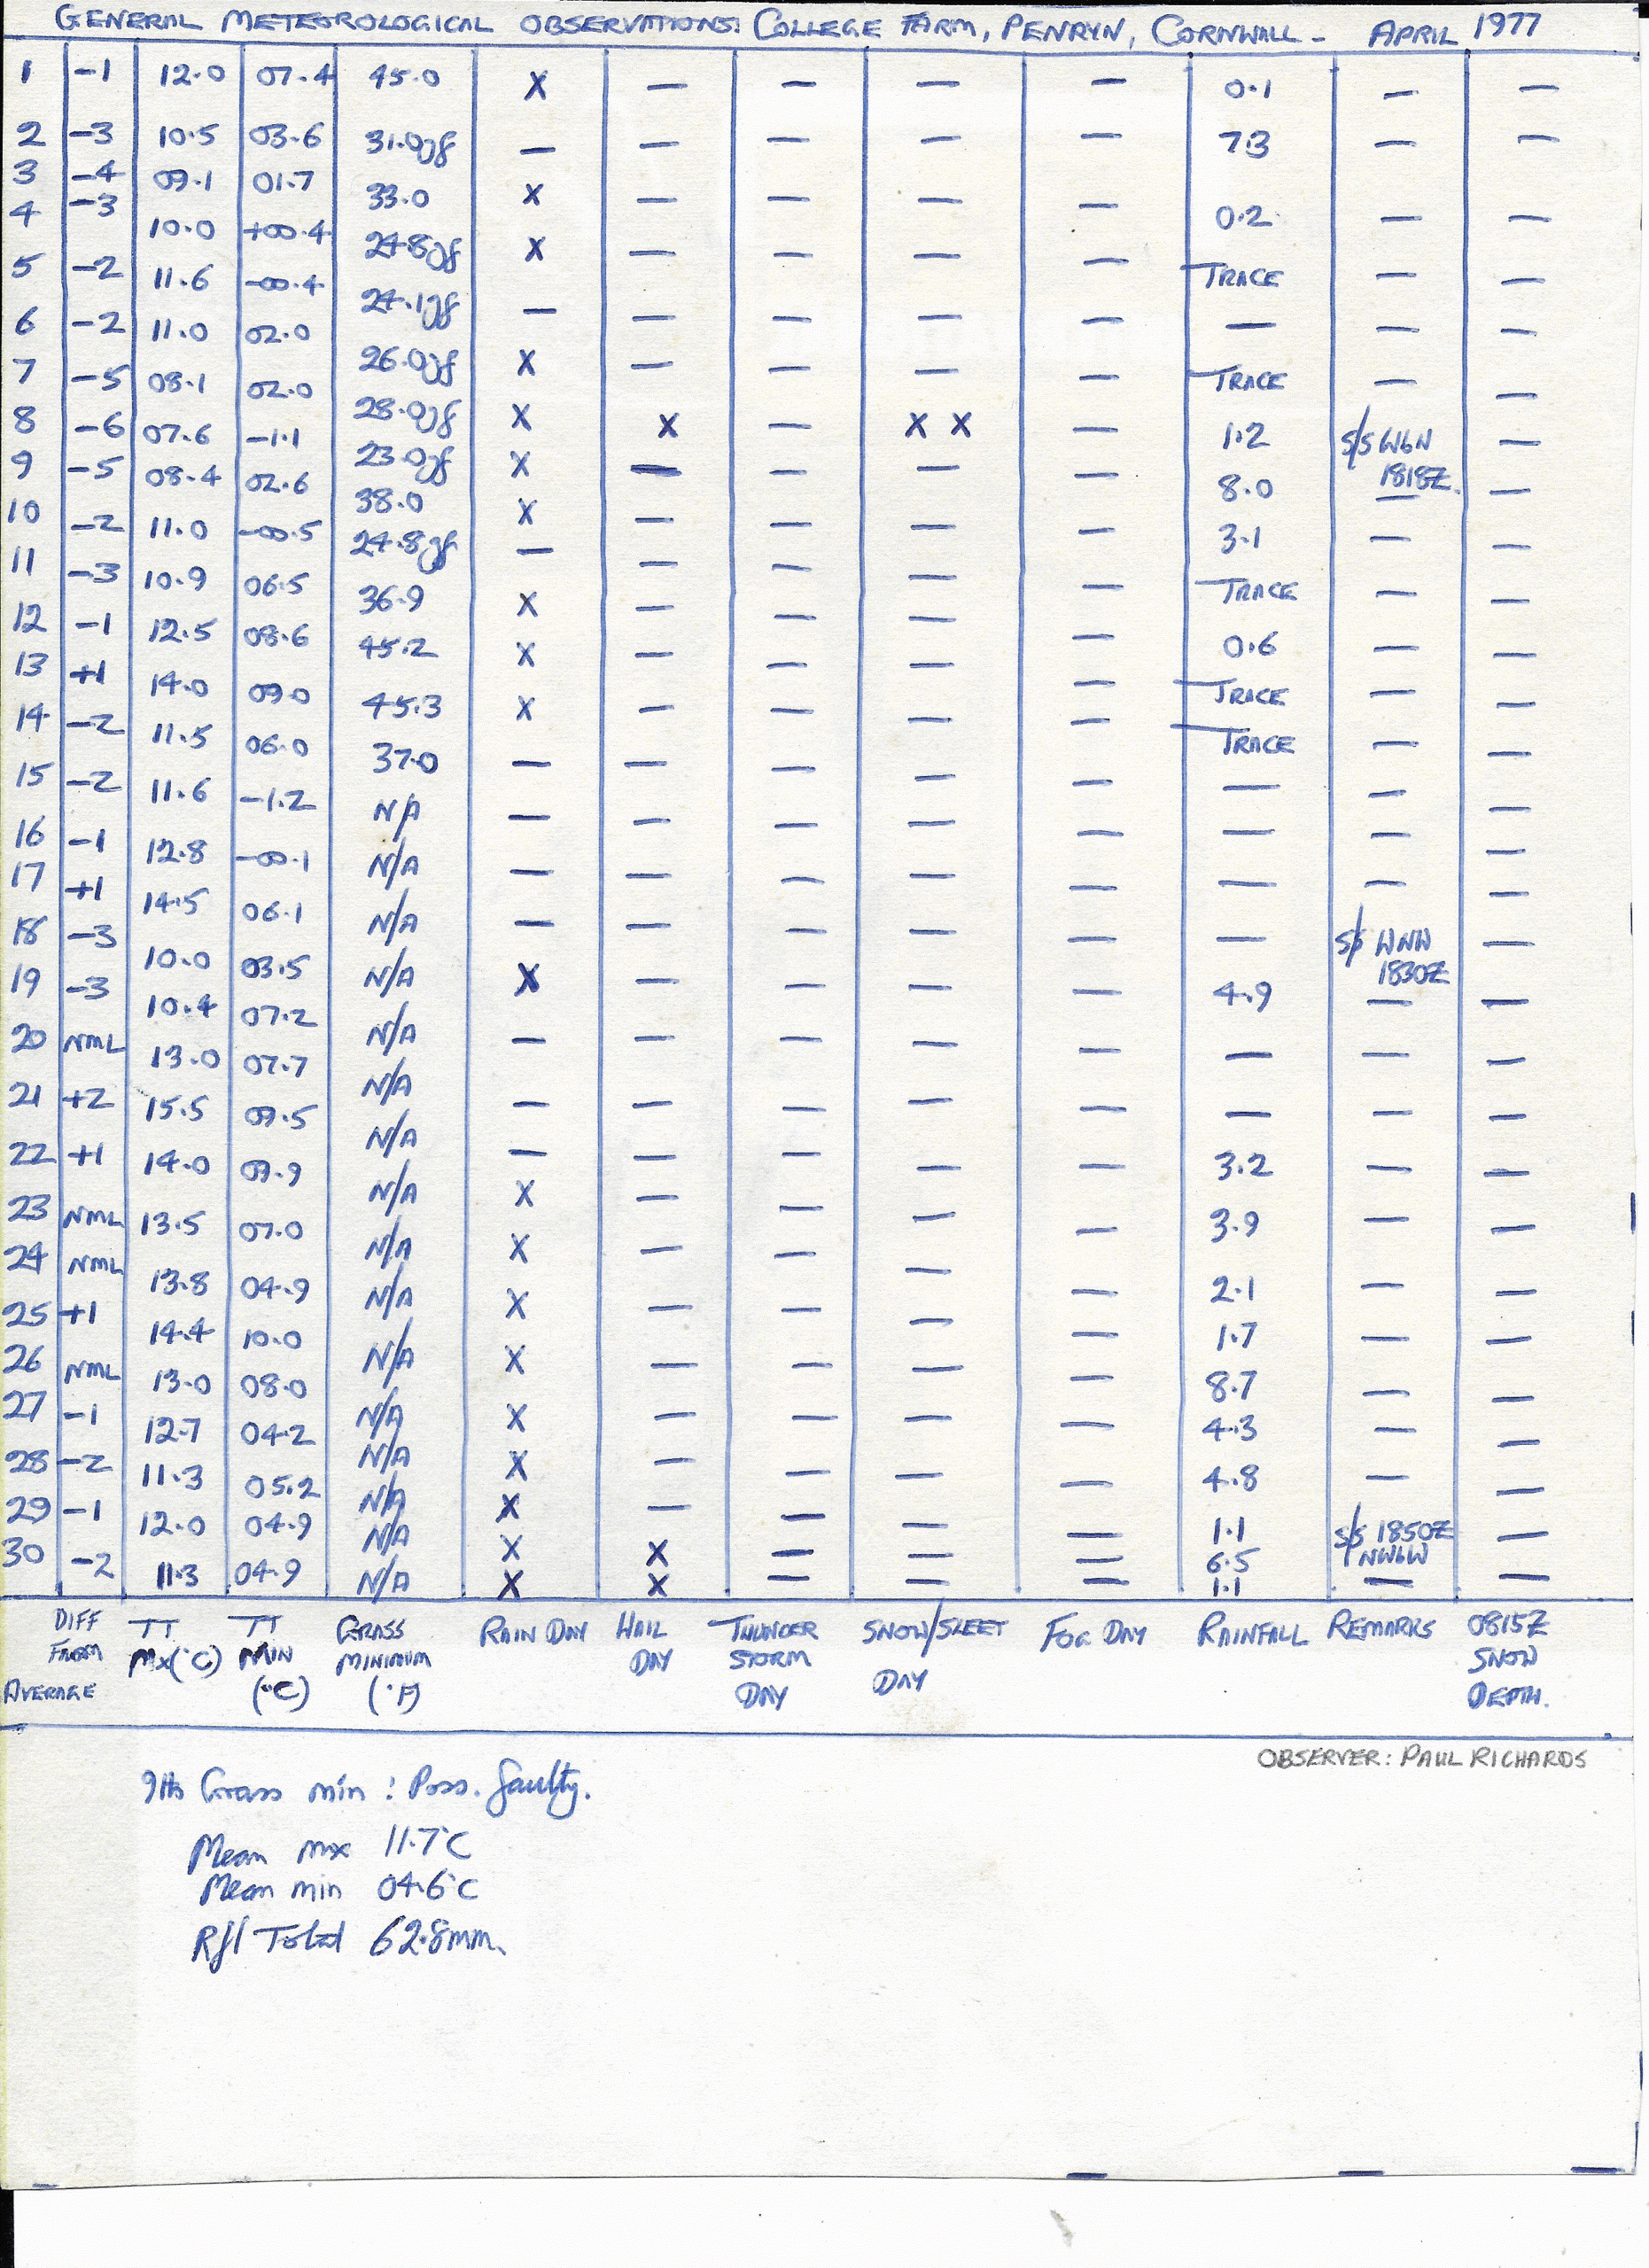 GENERAL METEOROLOGICAL OBSERVATIONS: COLLEGE FARM, PENRYN, CORNWALL - APRIL 1977
1 -1 12.0 07.4 45.0 X — — — — 0.1 — —
2 -3 10.5 03.6 31.0gf — — — — — 7.3 — —
3 -4 09.1 01.7 33.0 X — — — — 0.2 — —
4 -3 10.0 +00.4 24.8gf X — — — — TRACE — —
5 -2 11.6 -00.4 24.1gf — — — — — — — —
6 -2 11.0 02.0 26.0gf X — — — — TRACE — —
7 -5 08.1 02.0 28.0gf X X — X X — 1.2 S/S WbN 1818Z. —
8 -6 07.6 -1.1 23.0gf X — — — — 8.0 — —
9 -5 08.4 02.6 38.0 X — — — — 3.1 — —
10 -2 11.0 -00.5 24.8gf — — — — — TRACE — —
11 -3 10.9 06.5 36.9 X — — — — 0.6 — —
12 -1 12.5 08.6 45.2 X — — — — TRACE — —
13 +1 14.0 09.0 45.3 X — — — — TRACE — —
14 -2 11.5 06.0 37.0 — — — — — — — —
15 -2 11.6 -1.2 N/A — — — — — — — —
16 -1 12.8 -00.1 N/A — — — — — — — —
17 +1 14.5 06.1 N/A — — — — — — S/S WNW 1830Z —
18 -3 10.0 03.5 N/A X — — — — 4.9 — —
19 -3 10.4 07.2 N/A — — — — — — — —
20 NML 13.0 07.7 N/A — — — — — — — —
21 +2 15.5 09.5 N/A — — — — — 3.2 — —
22 +1 14.0 09.9 N/A X — — — — 3.9 — —
23 NML 13.5 07.0 N/A X — — — — 2.1 — —
24 NML 13.8 04.9 N/A X — — — — 1.7 — —
25 +1 14.4 10.0 N/A X — — — — 8.7 — —
26 NML 13.0 08.0 N/A X — — — — 4.3 — —
27 -1 12.7 04.2 N/A X — — — — 4.8 — —
28 -2 11.3 05.2 N/A X — — — — 1.1 — —
29 -1 12.0 04.9 N/A X X — — — 6.5 S/S 1850Z NWbW —
30 -2 11.3 04.9 N/A X X — — — 1.1 — —
DIFF TT TT GRASS RAIN DAY HAIL THUNDER SNOW/SLEET FOG DAY RAINFALL REMARKS 0815Z
FROM Mx(°C) MIN MINIMUM DAY STORM DAY SNOW
AVERAGE (°C) (°F) DAY DEPTH.
OBSERVER: PAUL RICHARDS
9th Grass min: Poss. faulty.
Mean mx 11.7°C
Mean min 04.6°C
Rfl Total 62.8mm.